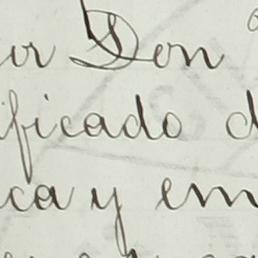 or Don
ificado d
ca y em